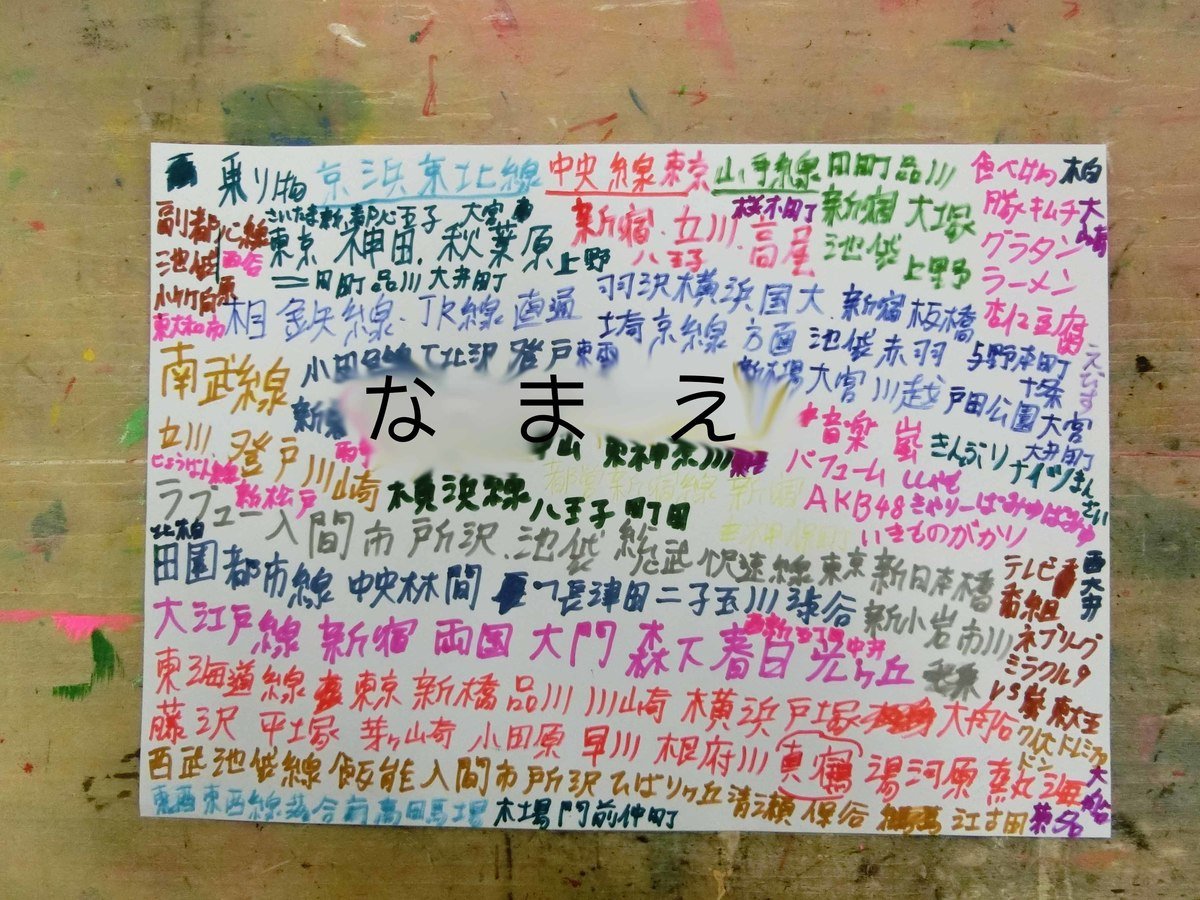 乗り物 京浜東北線 中央線東京 山手線 田町品川 食べ物 柏
副都心線 さいたま新都心 王子 大宮
東京 神田.秋葉原上野 新宿.立川.高尾 八王子 桜木町 新宿 大塚 池袋 上野 豚キムチ
池袋 渋谷 グラタン
小竹向原 田町品川大井町 ラーメン
東大和市 相鉄線.JR線直通 羽沢横浜国大.新宿板橋 杏仁豆腐
埼京線方面池袋赤羽 与野本町 十条 えびす
南武線 下北沢 登戸 新木場 大宮川越戸田公園大宮 大井町
なまえ
立川.登戸川崎 東神奈川 音楽 嵐 きんぷり ナイツまんざい
じょうばん線 新松戸 横浜線 八王子町田 都営新宿線 新宿 パフューム
AKB48きゃりーぱみゅぱみゅ
いきものがかり
ラブュー入間市所沢.池袋 総武快速線東京新日本橋 テレビ番組
北柏
田園都市線 中央林間 長津田二子玉川渋谷 新小岩市川 西大井
ネプリーグ
大江戸線 新宿 両国 大門 森下春日光が丘 中井 ミラクル9
東海道線 東京 新橋品川 川崎 横浜戸塚 VS嵐 東大王
藤沢 平塚 茅ヶ崎 小田原 早川 根府川 真鶴 湯河原 熱海 クイズドレミファドン
西武池袋線飯能入間市所沢ひばりヶ丘清瀬保谷 江古田 菊名
東西線落合 高田馬場 木場門前仲町